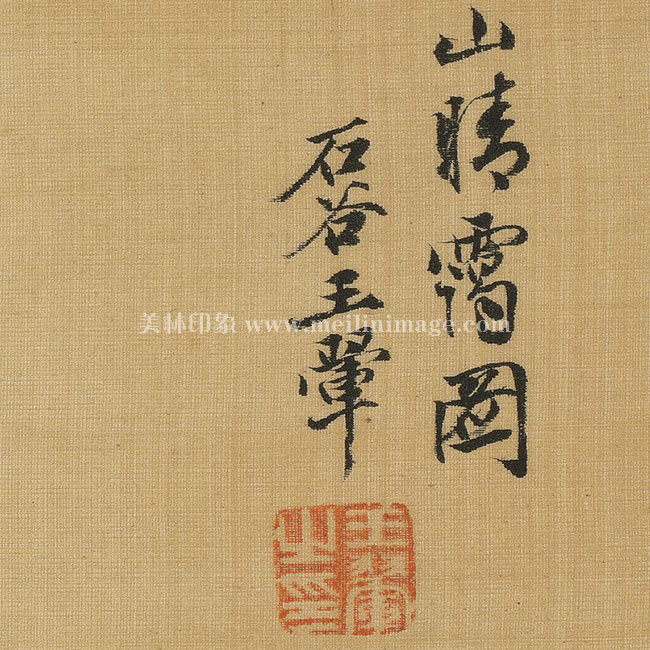 山晴靄圖
石谷王翬
王翬之印
美林印象 www.meilinimage.com